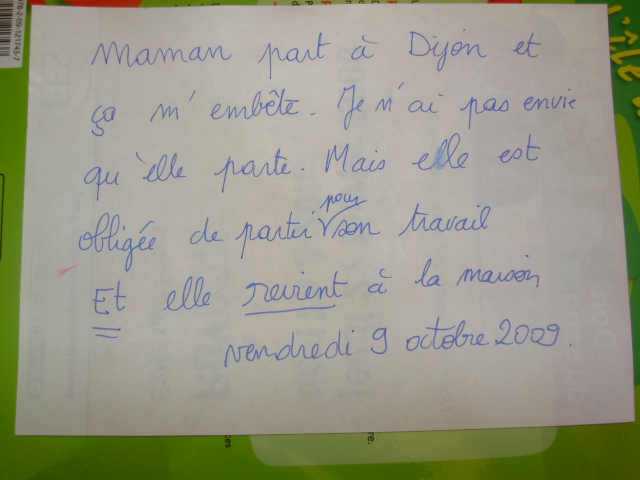 Maman part à Dijon et
ça m'embête. Je n'ai pas envie
qu'elle parte. Mais elle est
obligée de partir pour son travail
Et elle revient à la maison
vendredi 9 octobre 2009.
978-2-09-121743-7